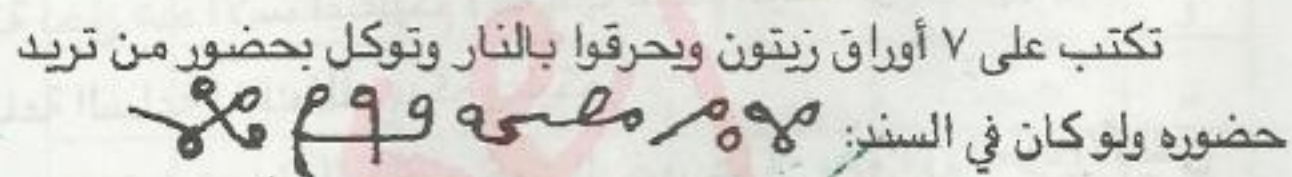 تكتب على ٧ أوراق زيتون ويحرقوا بالنار وتوكل بحضور من تريد
حضوره ولو كان في السند: